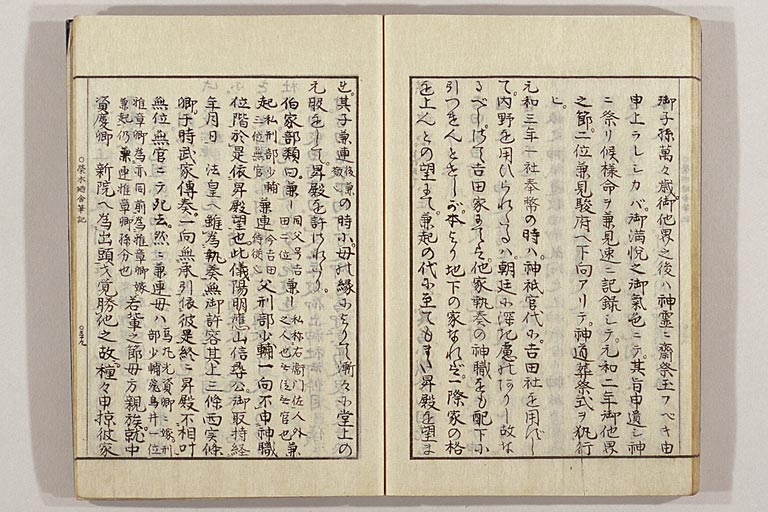 御子孫萬々歳御他界之後ハ神霊ニ齋祭玉フベキ由
申上ラレシカバ御満悦之御氣色ニテ其旨申遺シ神
ニ祭リ候様命ヲ兼見速ニ記録シテ元和二年御他界
之節二位兼見駿府ヘ下向アリテ神道葬祭式ヲ執行
し
元和三年一社奉幣の時ハ神祇官代小吉田社を用ひし
て内野を用ひられたるハ朝廷小深に慮れたりし故な
るべしばて吉田家まてハ他家執奏の神職をも配下小
引つきんとをしが本より地下の家なれバ一際家の格
を上んとの望まて兼起の代小至てもまい昇殿を望ま
と其子兼連後兼敬の時小母れ縁小よりて漸々小堂上の
元服をして昇殿を許けれらり
伯家部類曰兼
起私刑部少輔三位無官兼連今吉田侍従父刑部少輔一向不申神職
位階於是依昇殿望也此儀陽明應山信尋公御取持経
年月日 法皇ヘ雖為執奏無御許容其上三條西実條
卿于時武家傳奏一向無承引依彼是終ニ昇殿不相叶
無位無官ニテ死去然ニ兼連母ハ烏丸光賢卿ニ嫁刑部少輔飛鳥井一位
雅章卿為亦同前為雅章卿嫁兼起仍兼連雅章卿孫分也若輩之節母方親族就中
資慶卿 新院ヘ為出頭或覚勝他之故種々申掠彼家
○榮水端舎筆記
○五九